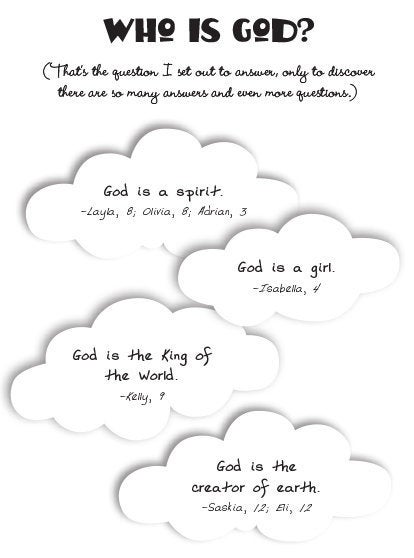 WHO IS GOD?
(That's the question I set out to answer, only to discover
there are so many answers and even more questions.)
God is a spirit.
-Layla, 8; Olivia, 8; Adrian, 3
God is a girl.
-Isabella, 4
God is the King of
the World.
-Kelly, 9
God is the
creator of earth.
-Saskia, 12; Eli, 12